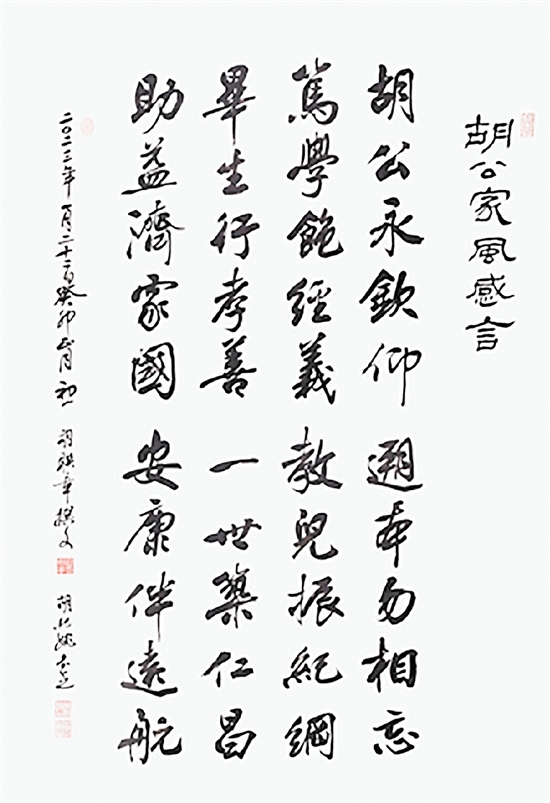 胡公家風感言
胡公永欽仰 遡本勿相忘
篤學飽經義 教兒振紀綱
畢生行孝善 一世築仁昌
助益濟家國 安康伴遠航
二〇二三年一月二十二日癸卯正月初一 章撰文 胡